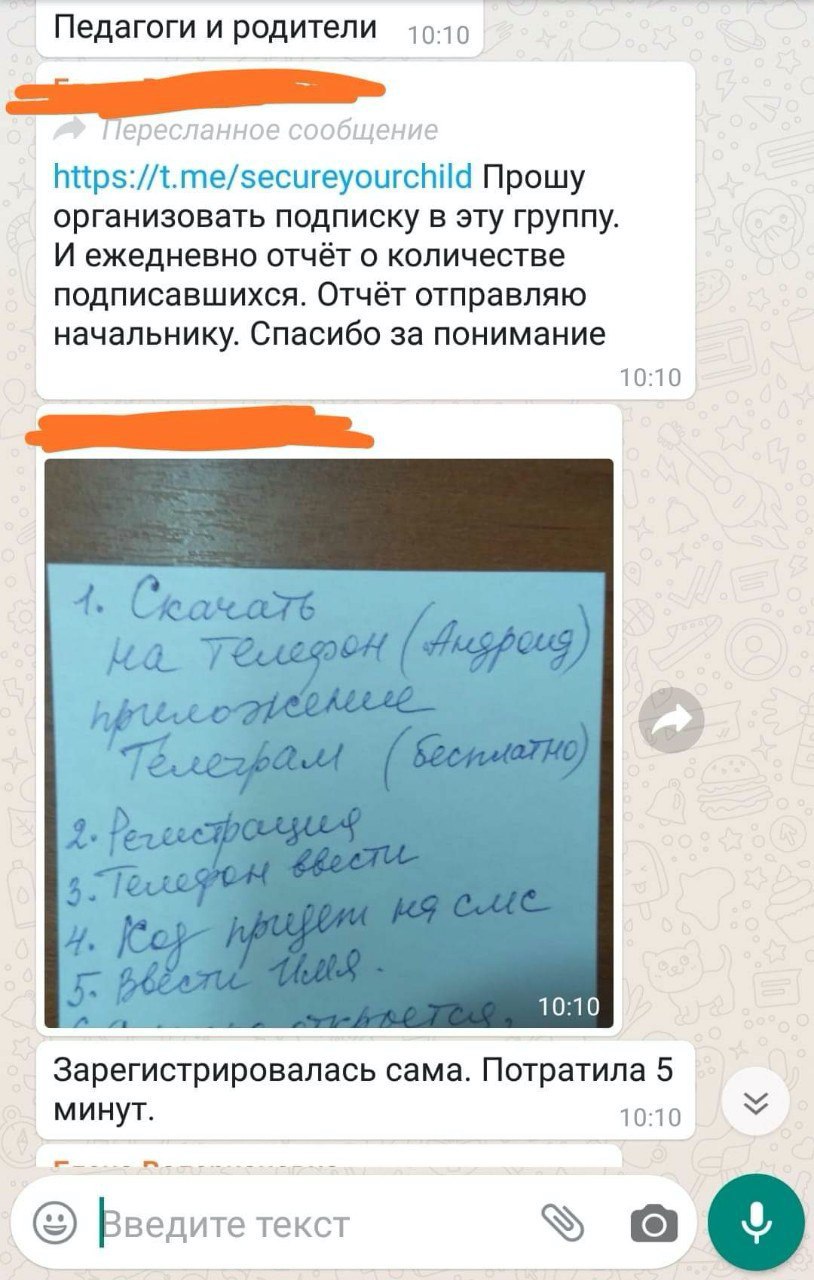 Педагоги и родители 10:10
Пересланное сообщение
https://t.me/secureyourchild Прошу
организовать подписку в эту группу.
И ежедневно отчёт о количестве
подписавшихся. Отчёт отправляю
начальнику. Спасибо за понимание
10:10
1. Скачать
на телефон (Андроид)
приложение
Телеграм (бесплатно)
2. Регистрация
3. Телефон ввести
4. Код придет на смс
5. Ввести имя.
откроется,
10:10
Зарегистрировалась сама. Потратила 5
минут.
10:10
Введите текст